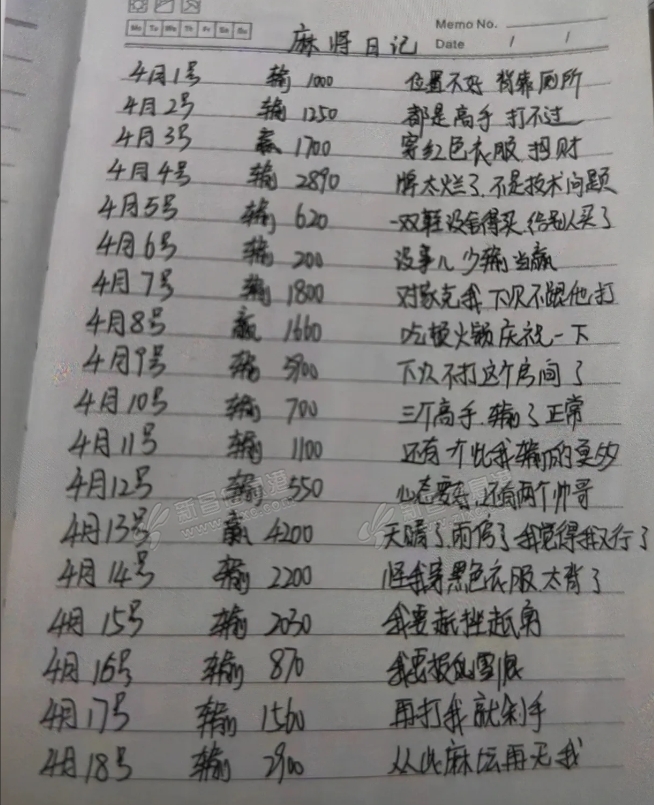 Memo No.
Mo Tu We Th Fr Sa Su
麻将日记 Date / /
4月1号 输 1000 位置不好 背靠厕所
4月2号 输 1250 都是高手 打不过
4月3号 赢 1700 穿红色衣服 招财
4月4号 输 2890 牌太烂了.不是技术问题
4月5号 输 620 一双鞋没舍得买.给别人买了
4月6号 输 200 没事儿 少输当赢
4月7号 输 1800 对家克我 下次不跟他打
4月8号 赢 1660 吃顿火锅庆祝一下
4月9号 输 下次不打这个房间了
4月10号 输 700 三个高手.输了正常
4月11号 输 1100 还有个比我输的更多
4月12号 输 550 心态要好.还有两个帅哥
4月13号 赢 4200 天晴了雨停了我觉得我又行了
4月14号 输 2200 怪我穿黑色衣服.太背了
4月15号 输 2030 我要越挫越勇
4月16号 输 870 我要报仇雪恨
4月17号 输 1560 再打我就剁手
4月18号 输 2900 从此麻坛再无我